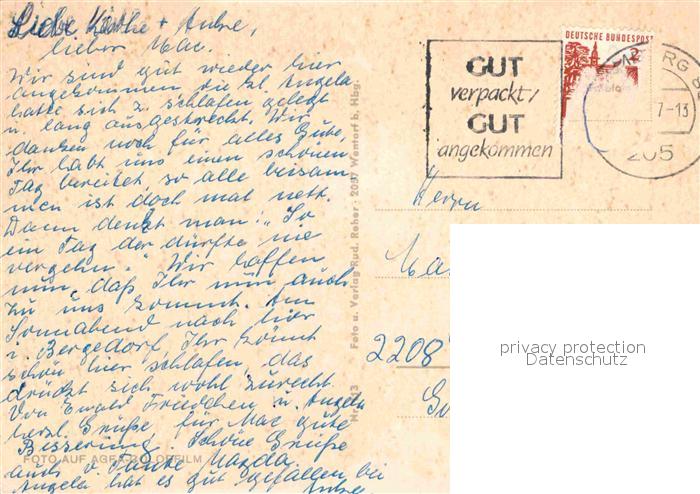 Liebe Käthe + Anke,
lieber Mac.
Wir sind gut wieder hier
angekommen, die kl. Angela
hatte sich z. schlafen gelegt
u. lang ausgestreckt. Wir
danken noch für alles Gute,
Ihr habt uns einen schönen
Tag bereitet, so alle beisam-
men ist doch mal nett.
Dann denkt man: "So
ein Tag der dürfte nie
vergehn." Wir hoffen
nun, daß Ihr nun auch
zu uns kommt. Am
Sonnabend nach hier
n. Bergedorf, Ihr könnt
schön hier schlafen, das
drückt sich wohl zurecht.
Von Ewald Friedchen u. Angela
herzl. Grüße für Mac gute
Besserung. Schöne Grüße
auch v. Tante Magda.
Angela hat es gut gefallen bei
FOTO AUF AGFA-COLORFILM
Foto u. Verlag Rud. Reher · 2057 Wentorf b. Hbg.
GUT
verpackt/
GUT
angekommen
DEUTSCHE BUNDESPOST
7-13
205
Herrn
2208
privacy protection
Datenschutz